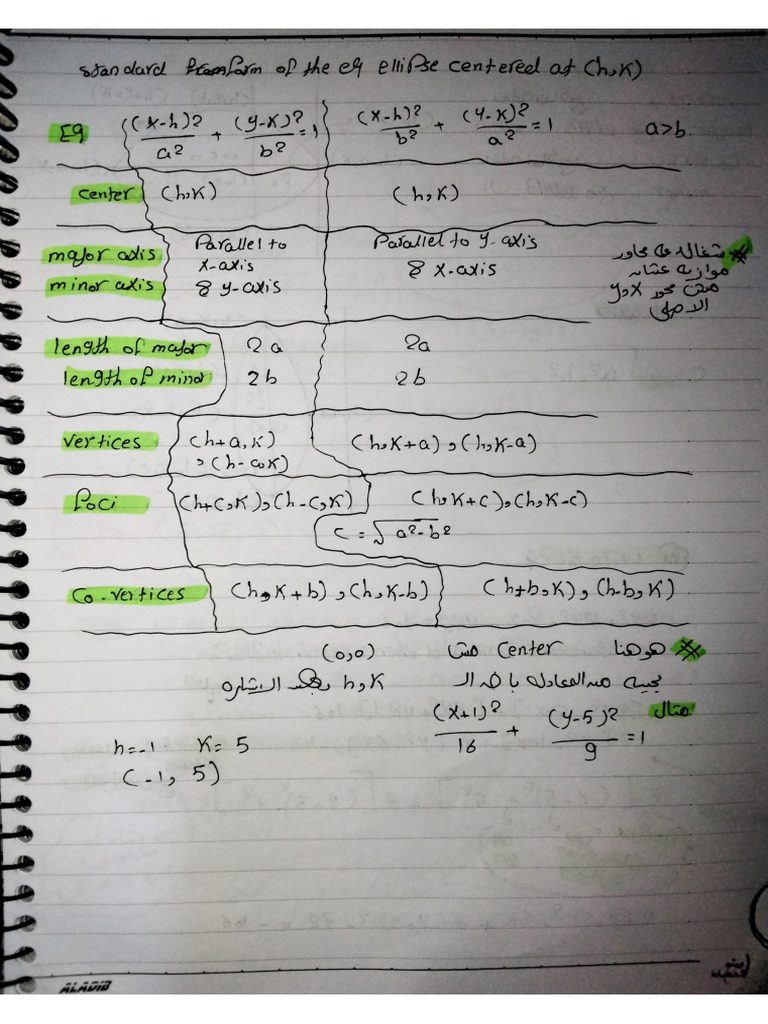 standard form of the eq ellipse centered at (h,K)
Eq (x-h)²/a² + (y-K)²/b² = 1 (x-h)²/b² + (y-K)²/a² = 1 a>b
center (h,K) (h,K)
major axis Parallel to x-axis Parallel to y-axis
minor axis & y-axis & x-axis
محاور
موازيه عشان
مش محور x و y
الاصلي
length of major 2a 2a
length of minor 2b 2b
vertices (h+a,K) (h,K+a) , (h,K-a)
, (h-a,K)
foci (h+c,K) , (h-c,K) (h,K+c) , (h,K-c)
c = √a²-b²
Co-vertices (h,K+b) , (h,K-b) (h+b,K) , (h-b,K)
هو هنا center مش (0,0)
بجيبه من المعادله باخد الـ h,K بعكس الاشاره
مثال (x+1)²/16 + (y-5)²/9 = 1
h=-1 K=5
(-1, 5)
ALADIB